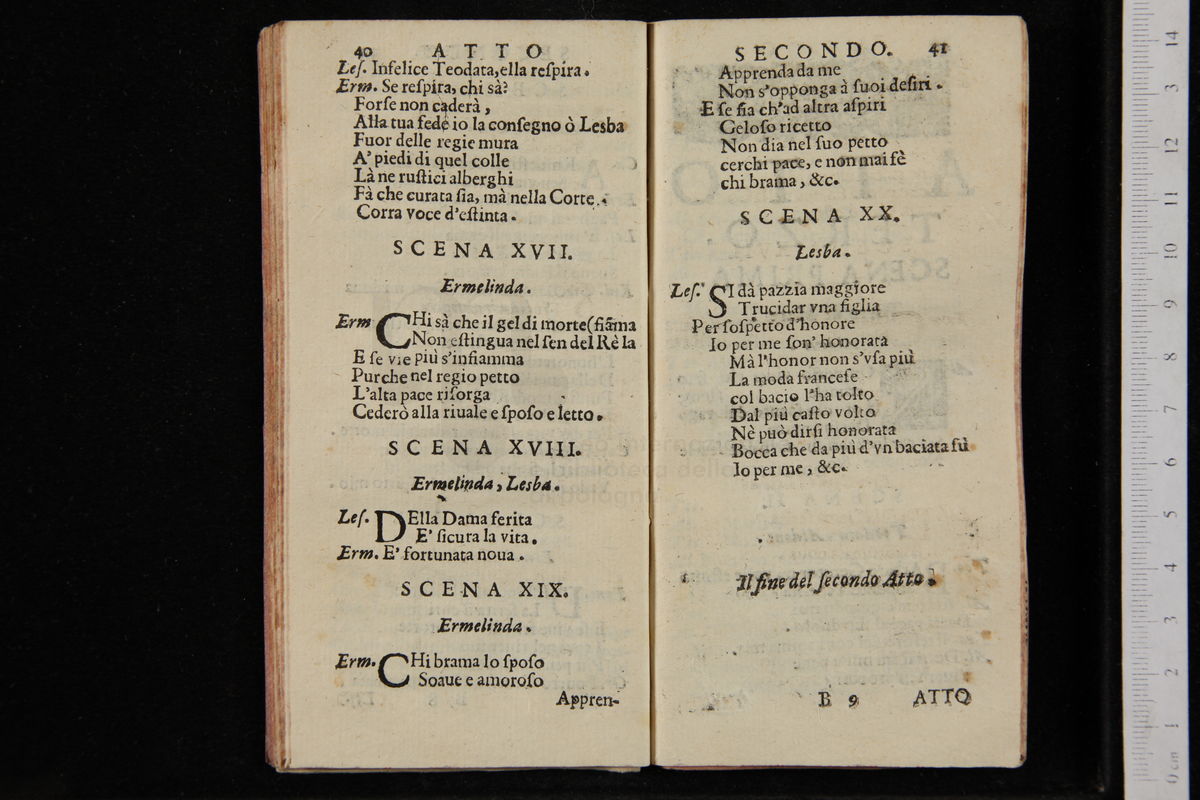 40 ATTO
Leſ. Infelice Teodata, ella reſpira.
Erm. Se reſpira, chi sà?
Forſe non caderà,
Alla tua fede io la conſegno ò Lesba
Fuor delle regie mura
A' piedi di quel colle
Là ne ruſtici alberghi
Fà che curata ſia, mà nella Corte.
Corra voce d'eſtinta.
SCENA XVII.
Ermelinda.
Erm CHi sà che il gel di morte (fiãma
Non eſtingua nel ſen del Rè la
E ſe vie più s'infiamma
Purche nel regio petto
L'alta pace riſorga
Cederò alla riuale e ſpoſo e letto.
SCENA XVIII.
Ermelinda, Lesba.
Leſ. DElla Dama ferita
E' ſicura la vita.
Erm. E' fortunata noua.
SCENA XIX.
Ermelinda.
Erm. CHi brama lo ſpoſo
Soaue e amoroſo
Appren-
SECONDO. 41
Apprenda da me
Non s'opponga à ſuoi deſiri.
E ſe ſia ch'ad altra aſpiri
Geloſo ricetto
Non dia nel ſuo petto
cerchi pace, e non mai fè
chi brama, &c.
SCENA XX.
Lesba.
Leſ. SI dà pazzia maggiore
Trucidar vna figlia
Per ſoſpetto d'honore
Io per me ſon' honorata
Mà l'honor non s'vſa più
La moda franceſe
col bacio l'ha tolto
Dal più caſto volto
Nè può dirſi honorata
Bocca che da più d'vn baciata fù
Io per me, &c.
Il fine del ſecondo Atto.
B 9 ATTO